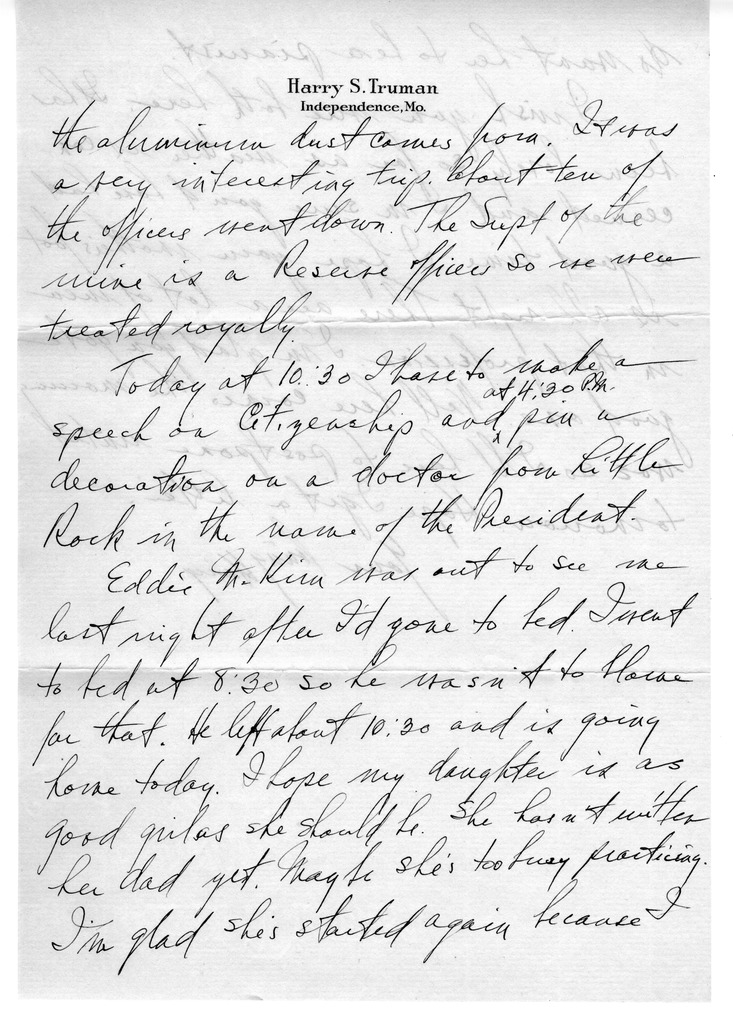 Harry S. Truman
Independence, Mo.
the aluminum dust comes from. It was
a very interesting trip. About ten of
the officers went down. The Supt of the
mine is a Reserve officer so we were
treated royally.
Today at 10:30 I have to make a
at 4:30 P.M.
speech on Citizenship and pin a
decoration on a doctor from Little
Rock in the name of the President.
Eddie McKim was out to see me
last night after I'd gone to bed. I went
to bed at 8:30 so he wasn't to blame
for that. He left about 10:30 and is going
home today. I hope my daughter is as
good girl as she should be. She hasn't written
her dad yet. Maybe she's too busy practicing.
I'm glad she's started again because I